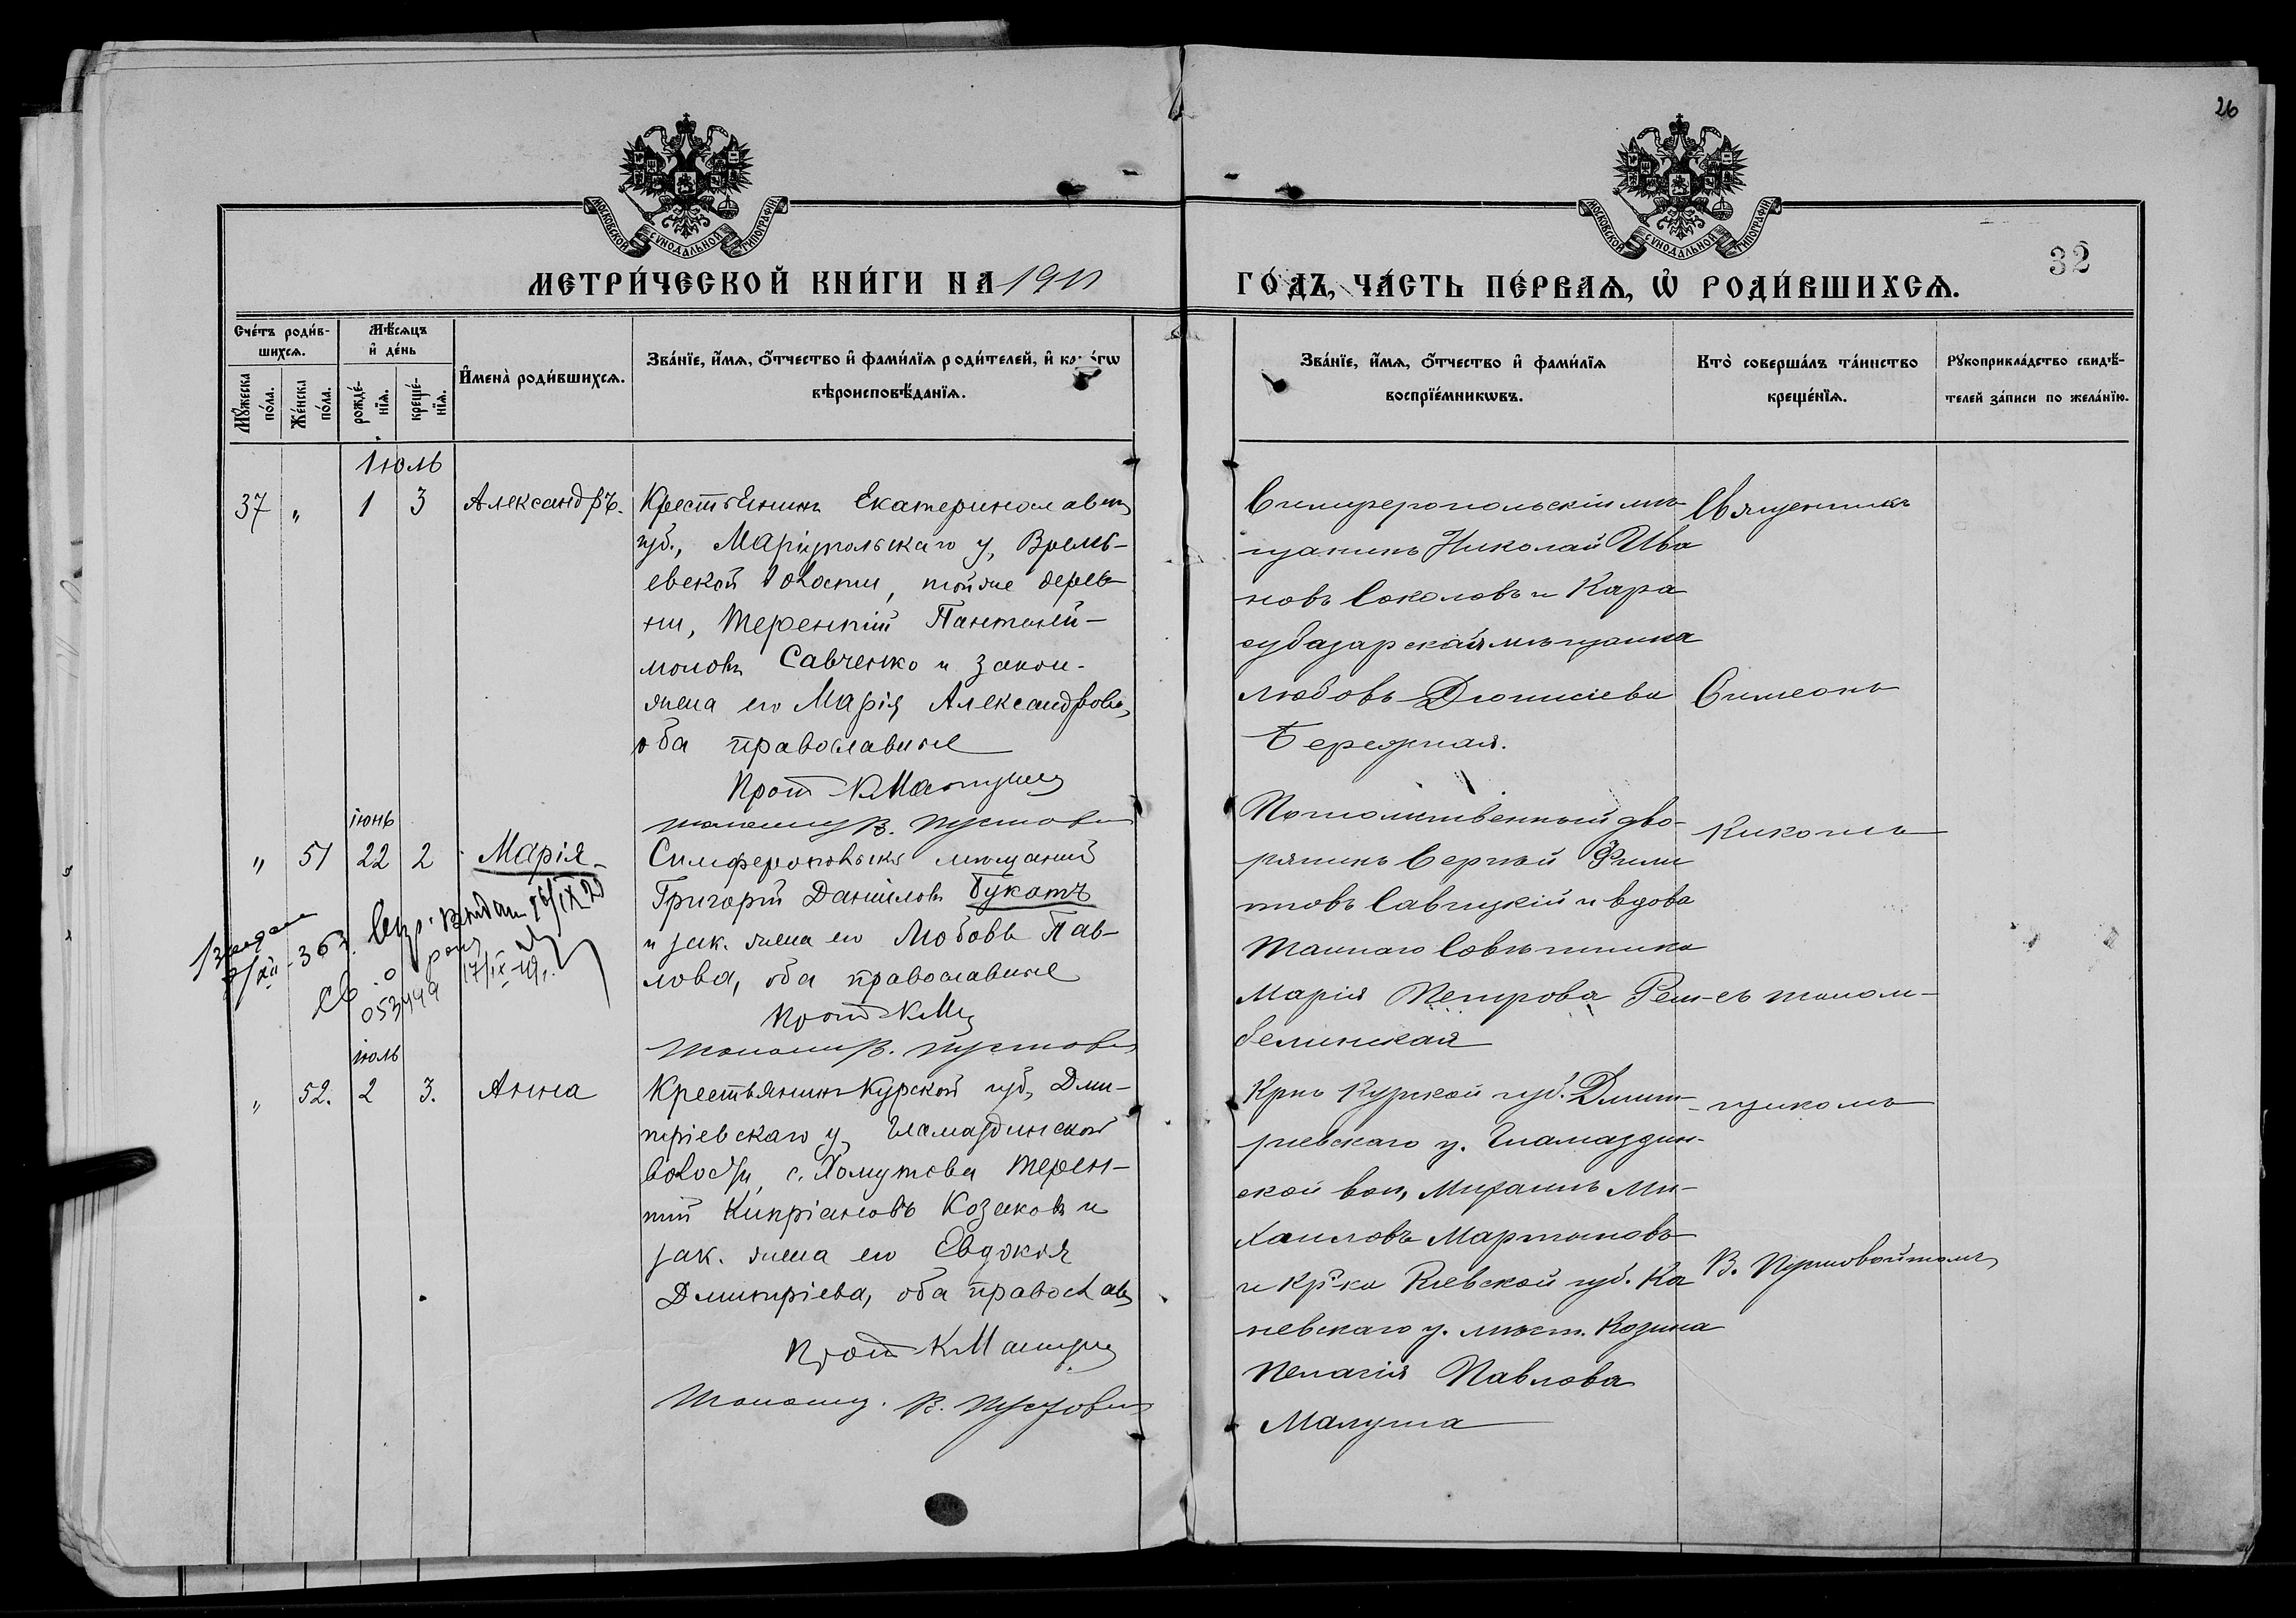 26
МОСКОВСКОЙ СУНОДАЛЬНОЙ ТИПОГРАФІИ
МОСКОВСКОЙ СУНОДАЛЬНОЙ ТИПОГРАФІИ
32
МЕТРИ́ЧЕСКОЙ КНИ́ГИ НА 1911
ГО́ДЪ, ЧА́СТЬ ПЕ́РВАѦ, Ѡ҆ РОДИ́ВШИХСѦ.
Сче́тъ роди́в-
шихсѧ.
Мꙋ́жеска
по́ла.
Же́нска
по́ла.
Мѣ́сѧцъ
и҆ де́нь
рожде́-
нїѧ.
креще́-
нїѧ.
И҆мена̀ роди́вшихсѧ.
Зва́нїе, и҆́мѧ, ѻ҆́тчество и҆ фами́лїѧ роди́телей, и҆
вѣроисповѣ́данїѧ.
Зва́нїе, и҆́мѧ, ѻ҆́тчество и҆ фами́лїѧ
воспрїе́мникѡвъ.
Кто̀ соверша́лъ та́инство
креще́нїѧ.
Рꙋкоприкла́дство свидѣ́-
телей за́писи по жела́нїю.
Іюль
37 " 1 3 Александръ.
Крестьянинъ Екатеринослав
губ., Маріупольскаго у, Времь-
евской волости, тойже дерев-
ни, Терентій Пантелей-
моновъ Савченко и закон.
жена его Марія Александрова,
оба православные
Прот К Ма
Симферопольскій мѣ-
щанинъ Николай Ива
новъ Соколовъ и Кара
субазарская мѣщанка
Любовь Діонисіева
Бережная.
Священникъ
Симеонъ
іюнь
" 51 22 2 Марія
Симферопольскій мѣщанинъ
Григорій Даніиловъ Букатъ
и зак. жена его Любовь Пав-
лова, оба православные
Прот К М
Потомственный дво-
рянинъ Сергѣй Фили
пповъ Савицкій и вдова
Тайнаго Совѣтника
Марія Петрова Рем-
белинская
съ псалом-
363.
053449
17/IX-19г.
іюль
" 52. 2 3. Анна
Крестьянинъ Курской губ, Дми-
тріевскаго у,
волости, с. Хомутовки Терен-
тій Кипріановъ Козаковъ и
зак. жена его Евдокія
Дмитріева, оба православ
Прот К Ма
Крнъ Курской губ. Дмит-
ріевскаго у.
ской вол, Михаилъ Ми-
хаиловъ Мартыновъ
и кр-ка Кіевской губ. Ка
невскаго у. мѣст. Козина
Пелагія Павлова
Малуша
щикомъ
В. Пустовойтомъ